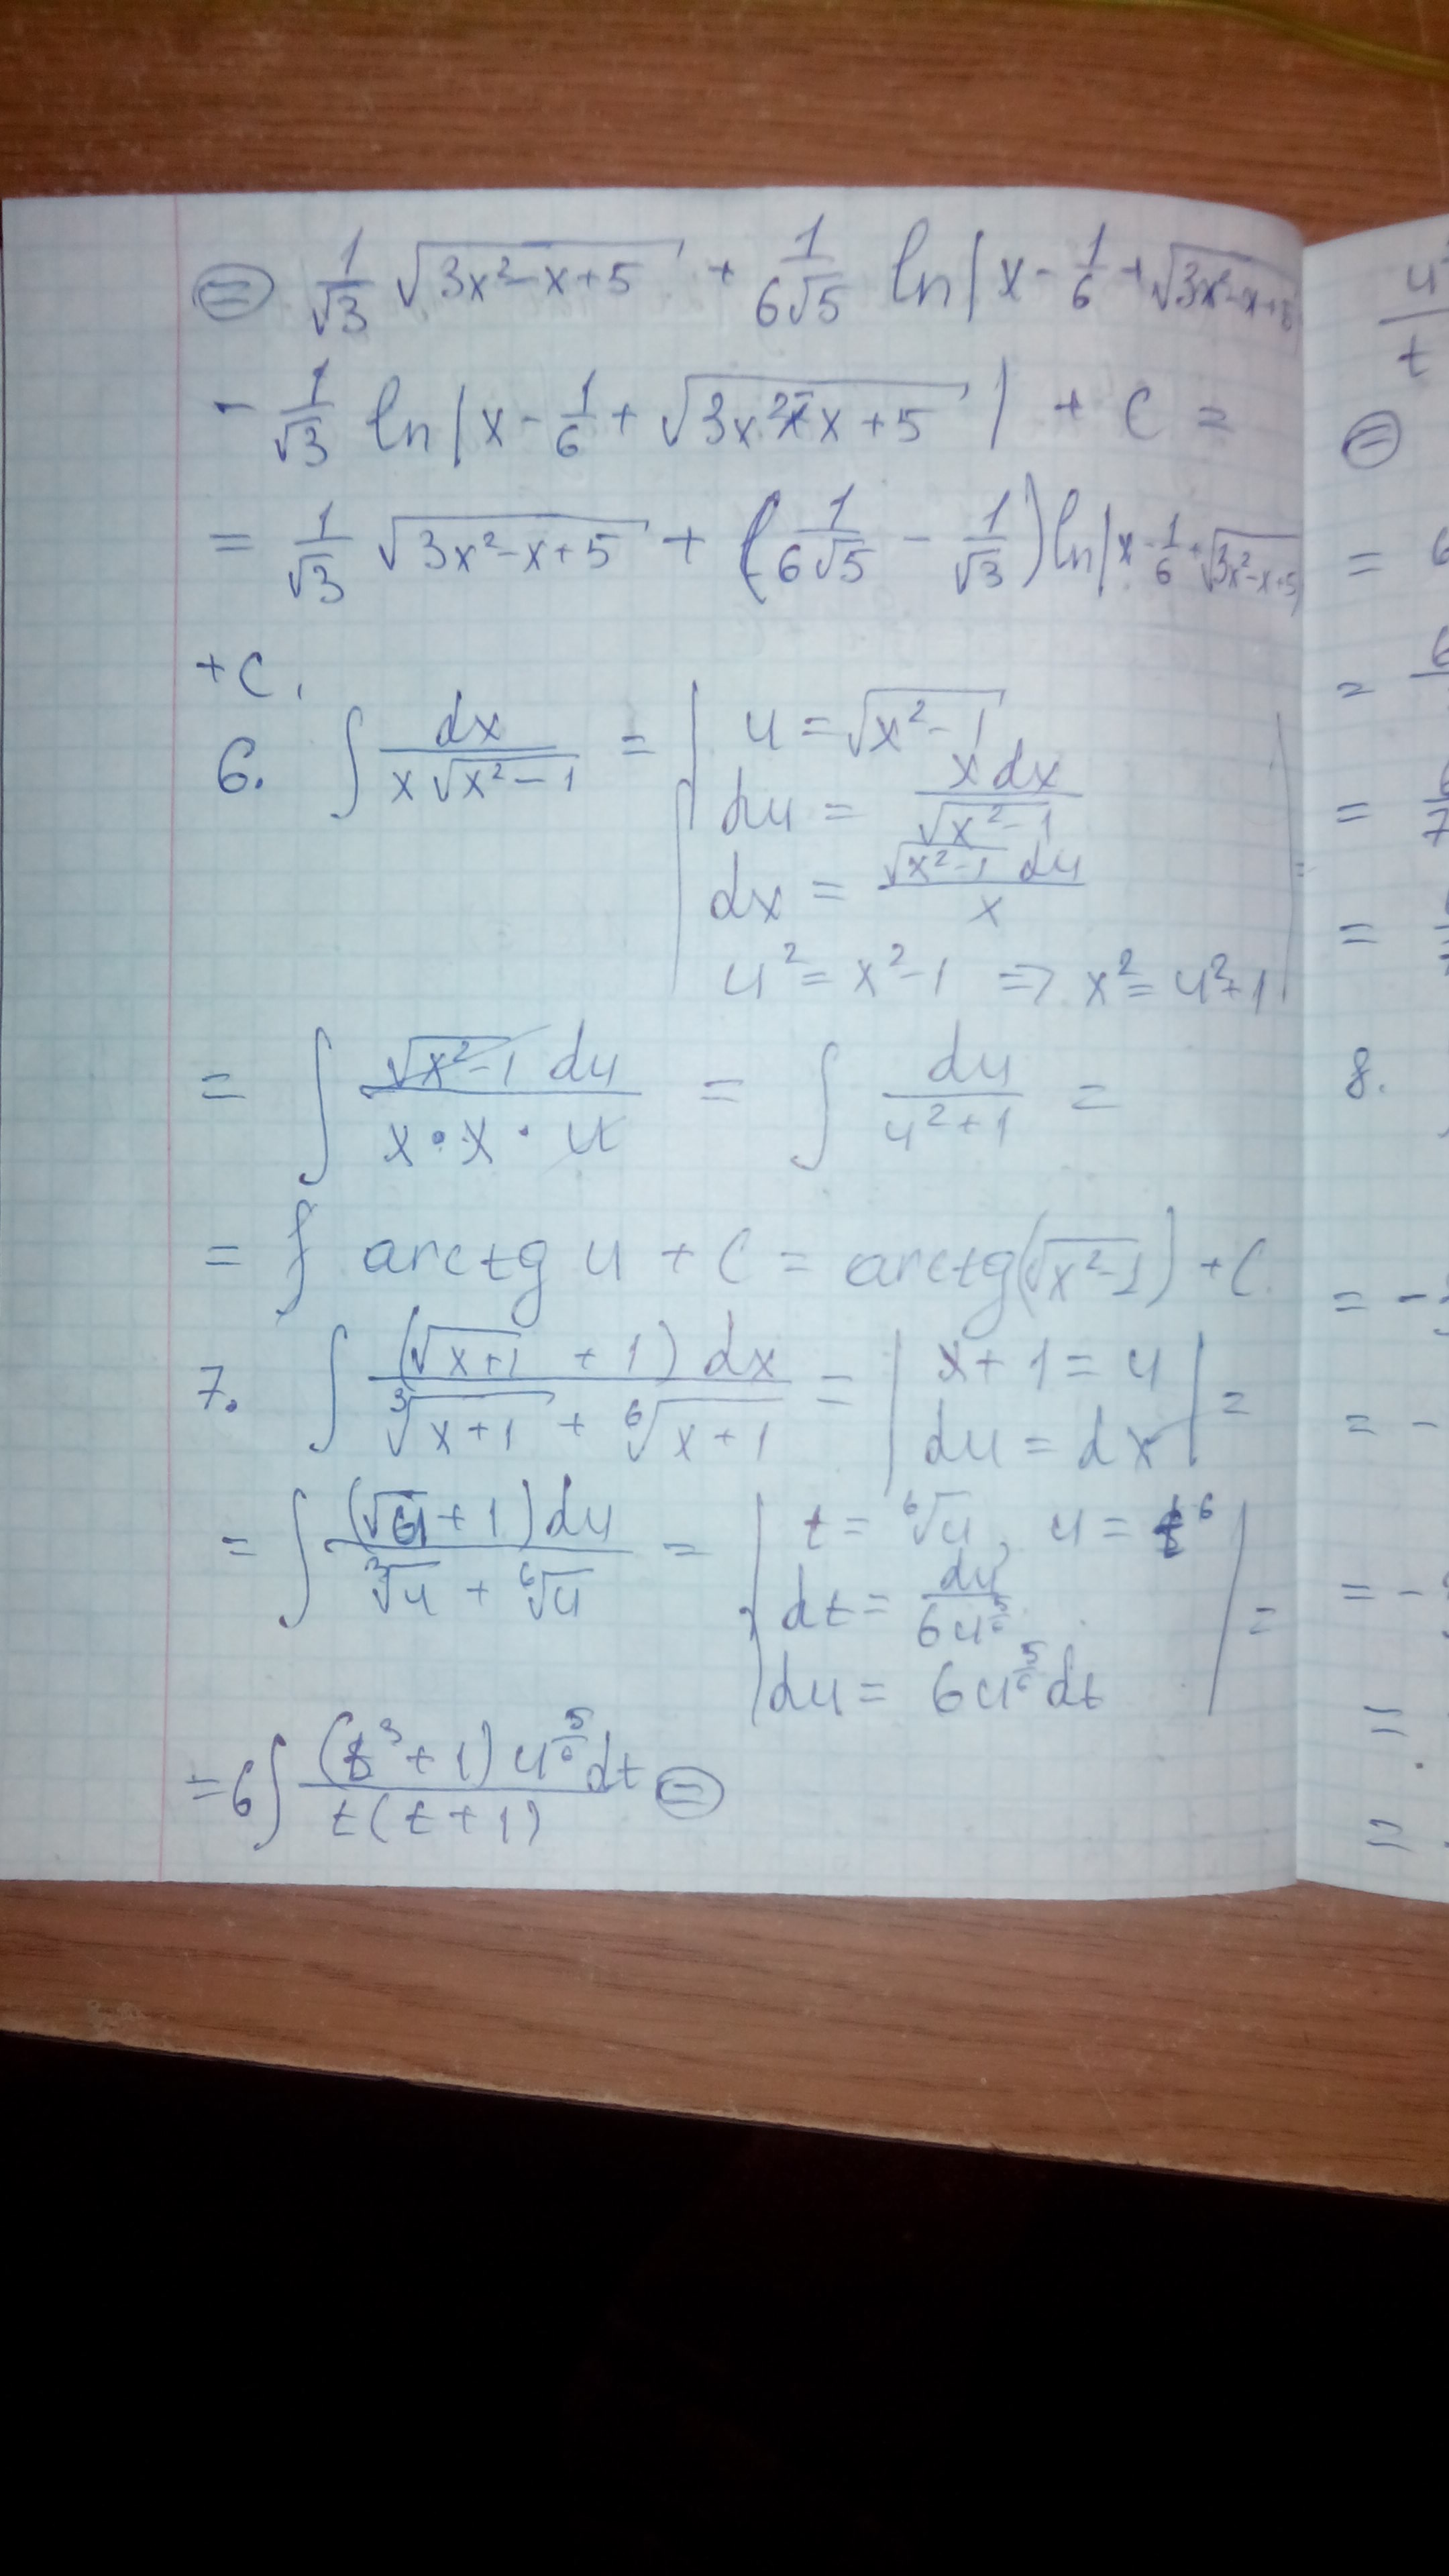 ⊜ 1/√3 √(3x²-x+5) + 1/(6√5) ln|x - 1/6 + √(3x²-x+5)
- 1/√3 ln|x - 1/6 + √(3x²-x+5)| + C =
= 1/√3 √(3x²-x+5) + (1/(6√5) - 1/√3) ln|x - 1/6 + √(3x²-x+5)
+C.
6. ∫ dx/(x√(x²-1)) = | u = √(x²-1)
du = x dx/√(x²-1)
dx = √(x²-1) du/x | =
u² = x²-1 => x² = u²+1
= ∫ √(x²-1) du/(x·x·u) = ∫ du/(u²+1) =
= arctg u + C = arctg(√(x²-1)) + C.
7. ∫ (√(x+1) + 1) dx/(∛(x+1) + ⁶√(x+1)) = | x+1 = u | =
du = dx
= ∫ (√u + 1) du/(∛u + ⁶√u) = | t = ⁶√u, u = t⁶
dt = du/(6u^(5/6)) | =
du = 6u^(5/6) dt
= 6 ∫ (t³ + 1) u^(5/6) dt/(t(t + 1)) ⊜
t
⊜
=
=
=
=
8.
= -
= -
= -
=
=